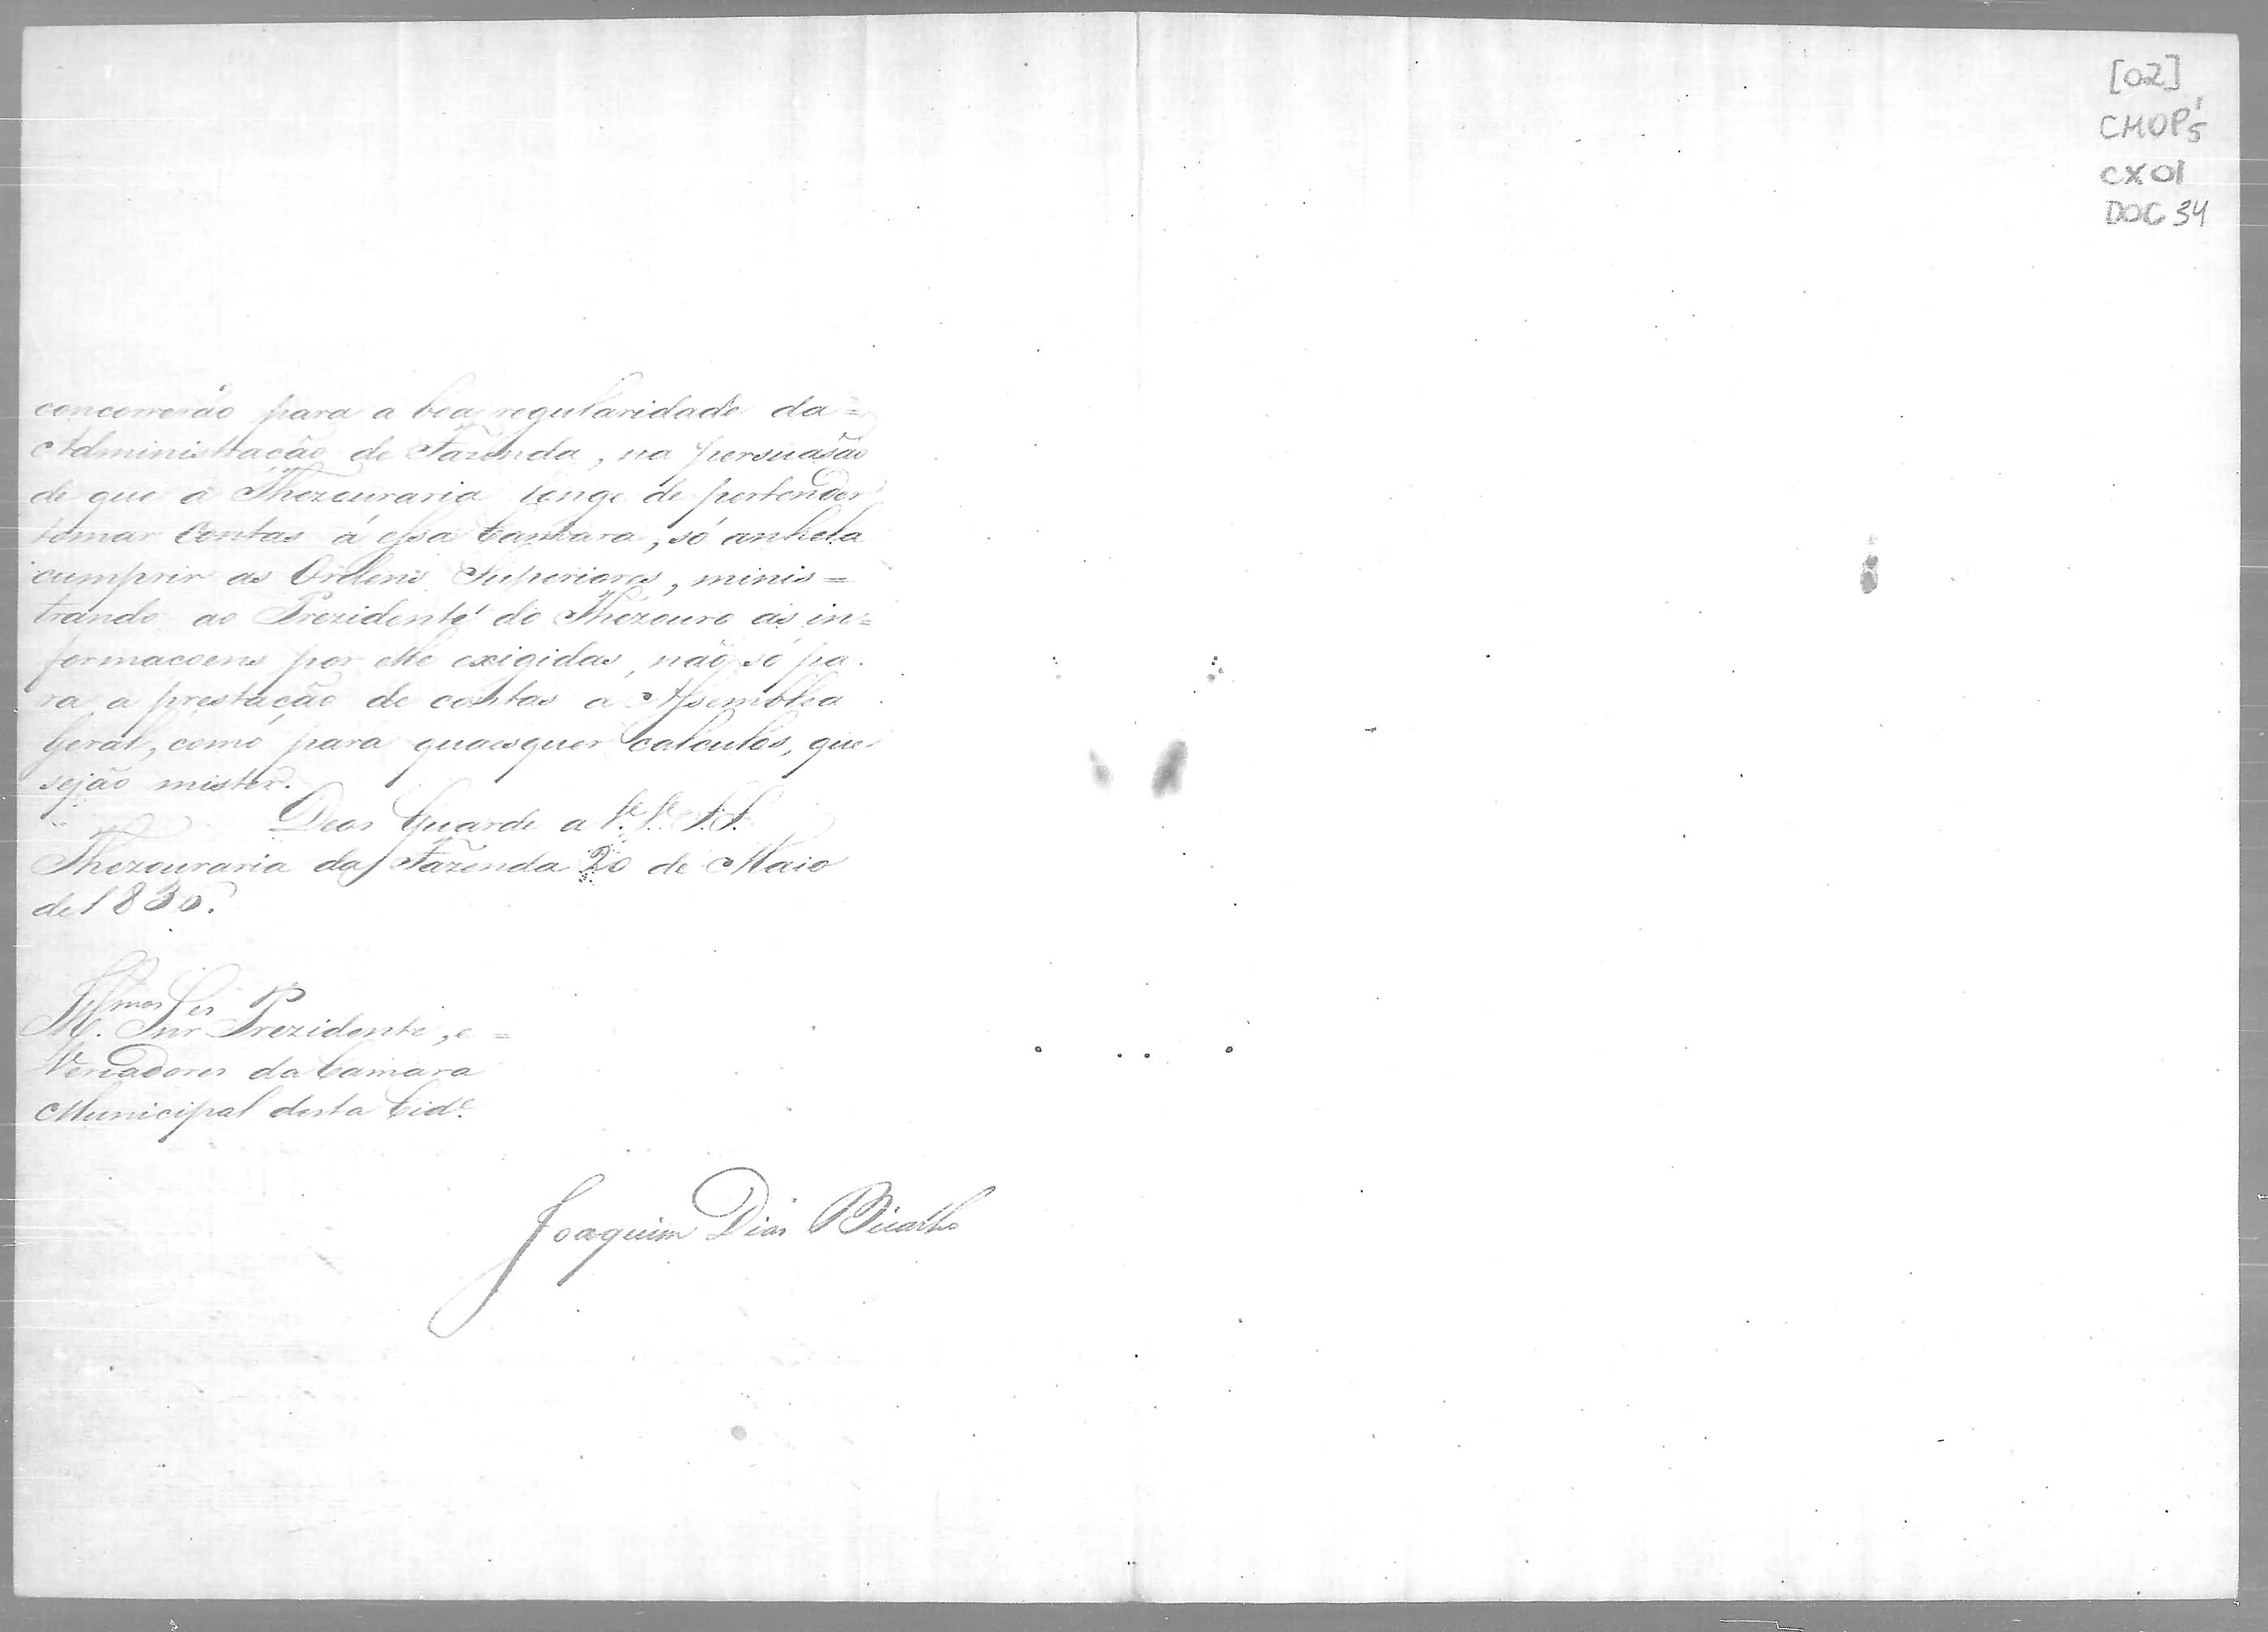 [02]
CMOP
CX 01
DOC 34
concorrerão para a boa regularidade da=
Administração de Fazenda, na persuasão
de que a Thezouraria longe de pertender
tomar Contas á essa Camara, só anhela
cumprir as Ordens Superiores, minis=
trando ao Prezidente do Thezouro as in=
formacoens por elle exigidas, não só pa
ra a prestação de contas a Assemblea
Geral, como para quaesquer calculos, que
sejão mister.
Deos Guarde a V.V. S.S.
Thezouraria da Fazenda 20 de Maio
de 1830.
Illmos Snr Prezidente, e=
Vereadores da Camara
Municipal desta Cide.
Joaquim Dias Bicalho